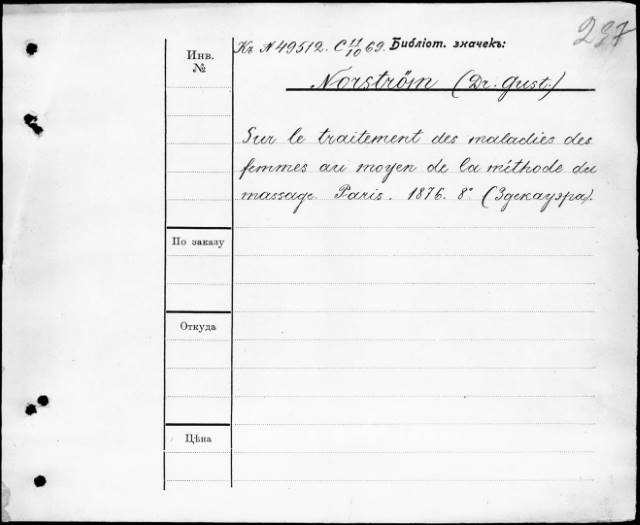 237
Къ N 49512. С 11/10 69. Библіот. значекъ:
Инв. №
Norström (Dr. Gust.)
Sur le traitement des maladies des
femmes au moyen de la méthode du
massage. Paris. 1876. 8° (Здекауэра).
По заказу
Откуда
Цѣна